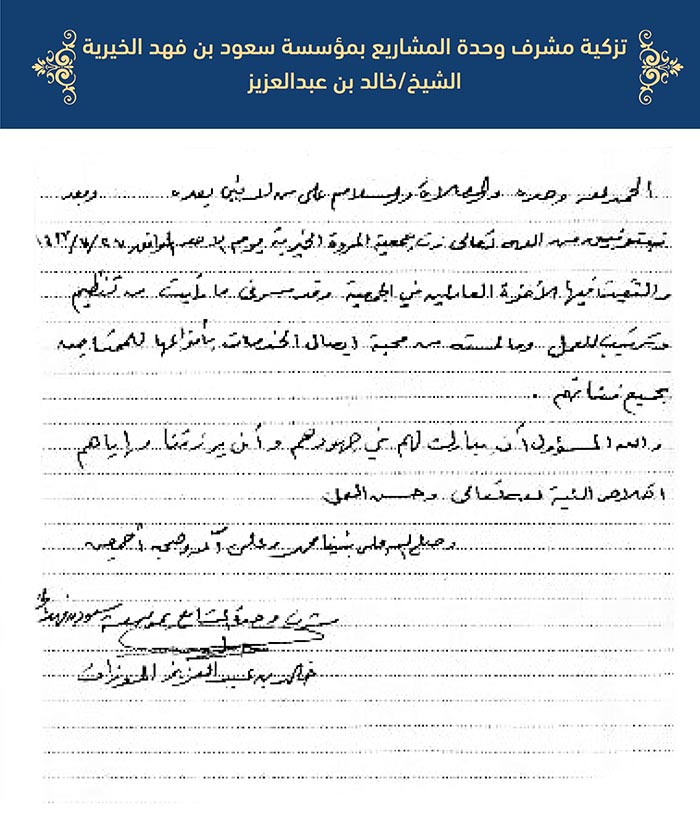 تزكية مشرف وحدة المشاريع بمؤسسة سعود بن فهد الخيرية
الشيخ/خالد بن عبدالعزيز
الحمد لله وحده والصلاة والسلام على من لا نبي بعده وبعد
فبتوفيق من الله تعالى زرت جمعية المودة الخيرية يوم الأحد الموافق
والتقيت فيها الأخوة العاملين في الجمعية وقد سرني ما رأيت من تنظيم
وترتيب للعمل وما لمسته من محبة ايصال الخدمات بأنواعها للمحتاجين
بجميع فئاتهم .
والله المسؤول أن يبارك لهم في جهودهم وأن يرزقنا وإياهم
اخلاص النية لله تعالى وحسن العمل
وصلى الله على نبينا محمد وعلى آله وصحبه أجمعين
مشرف وحدة المشاريع بمؤسسة سعود بن فهد
خالد بن عبدالعزيز